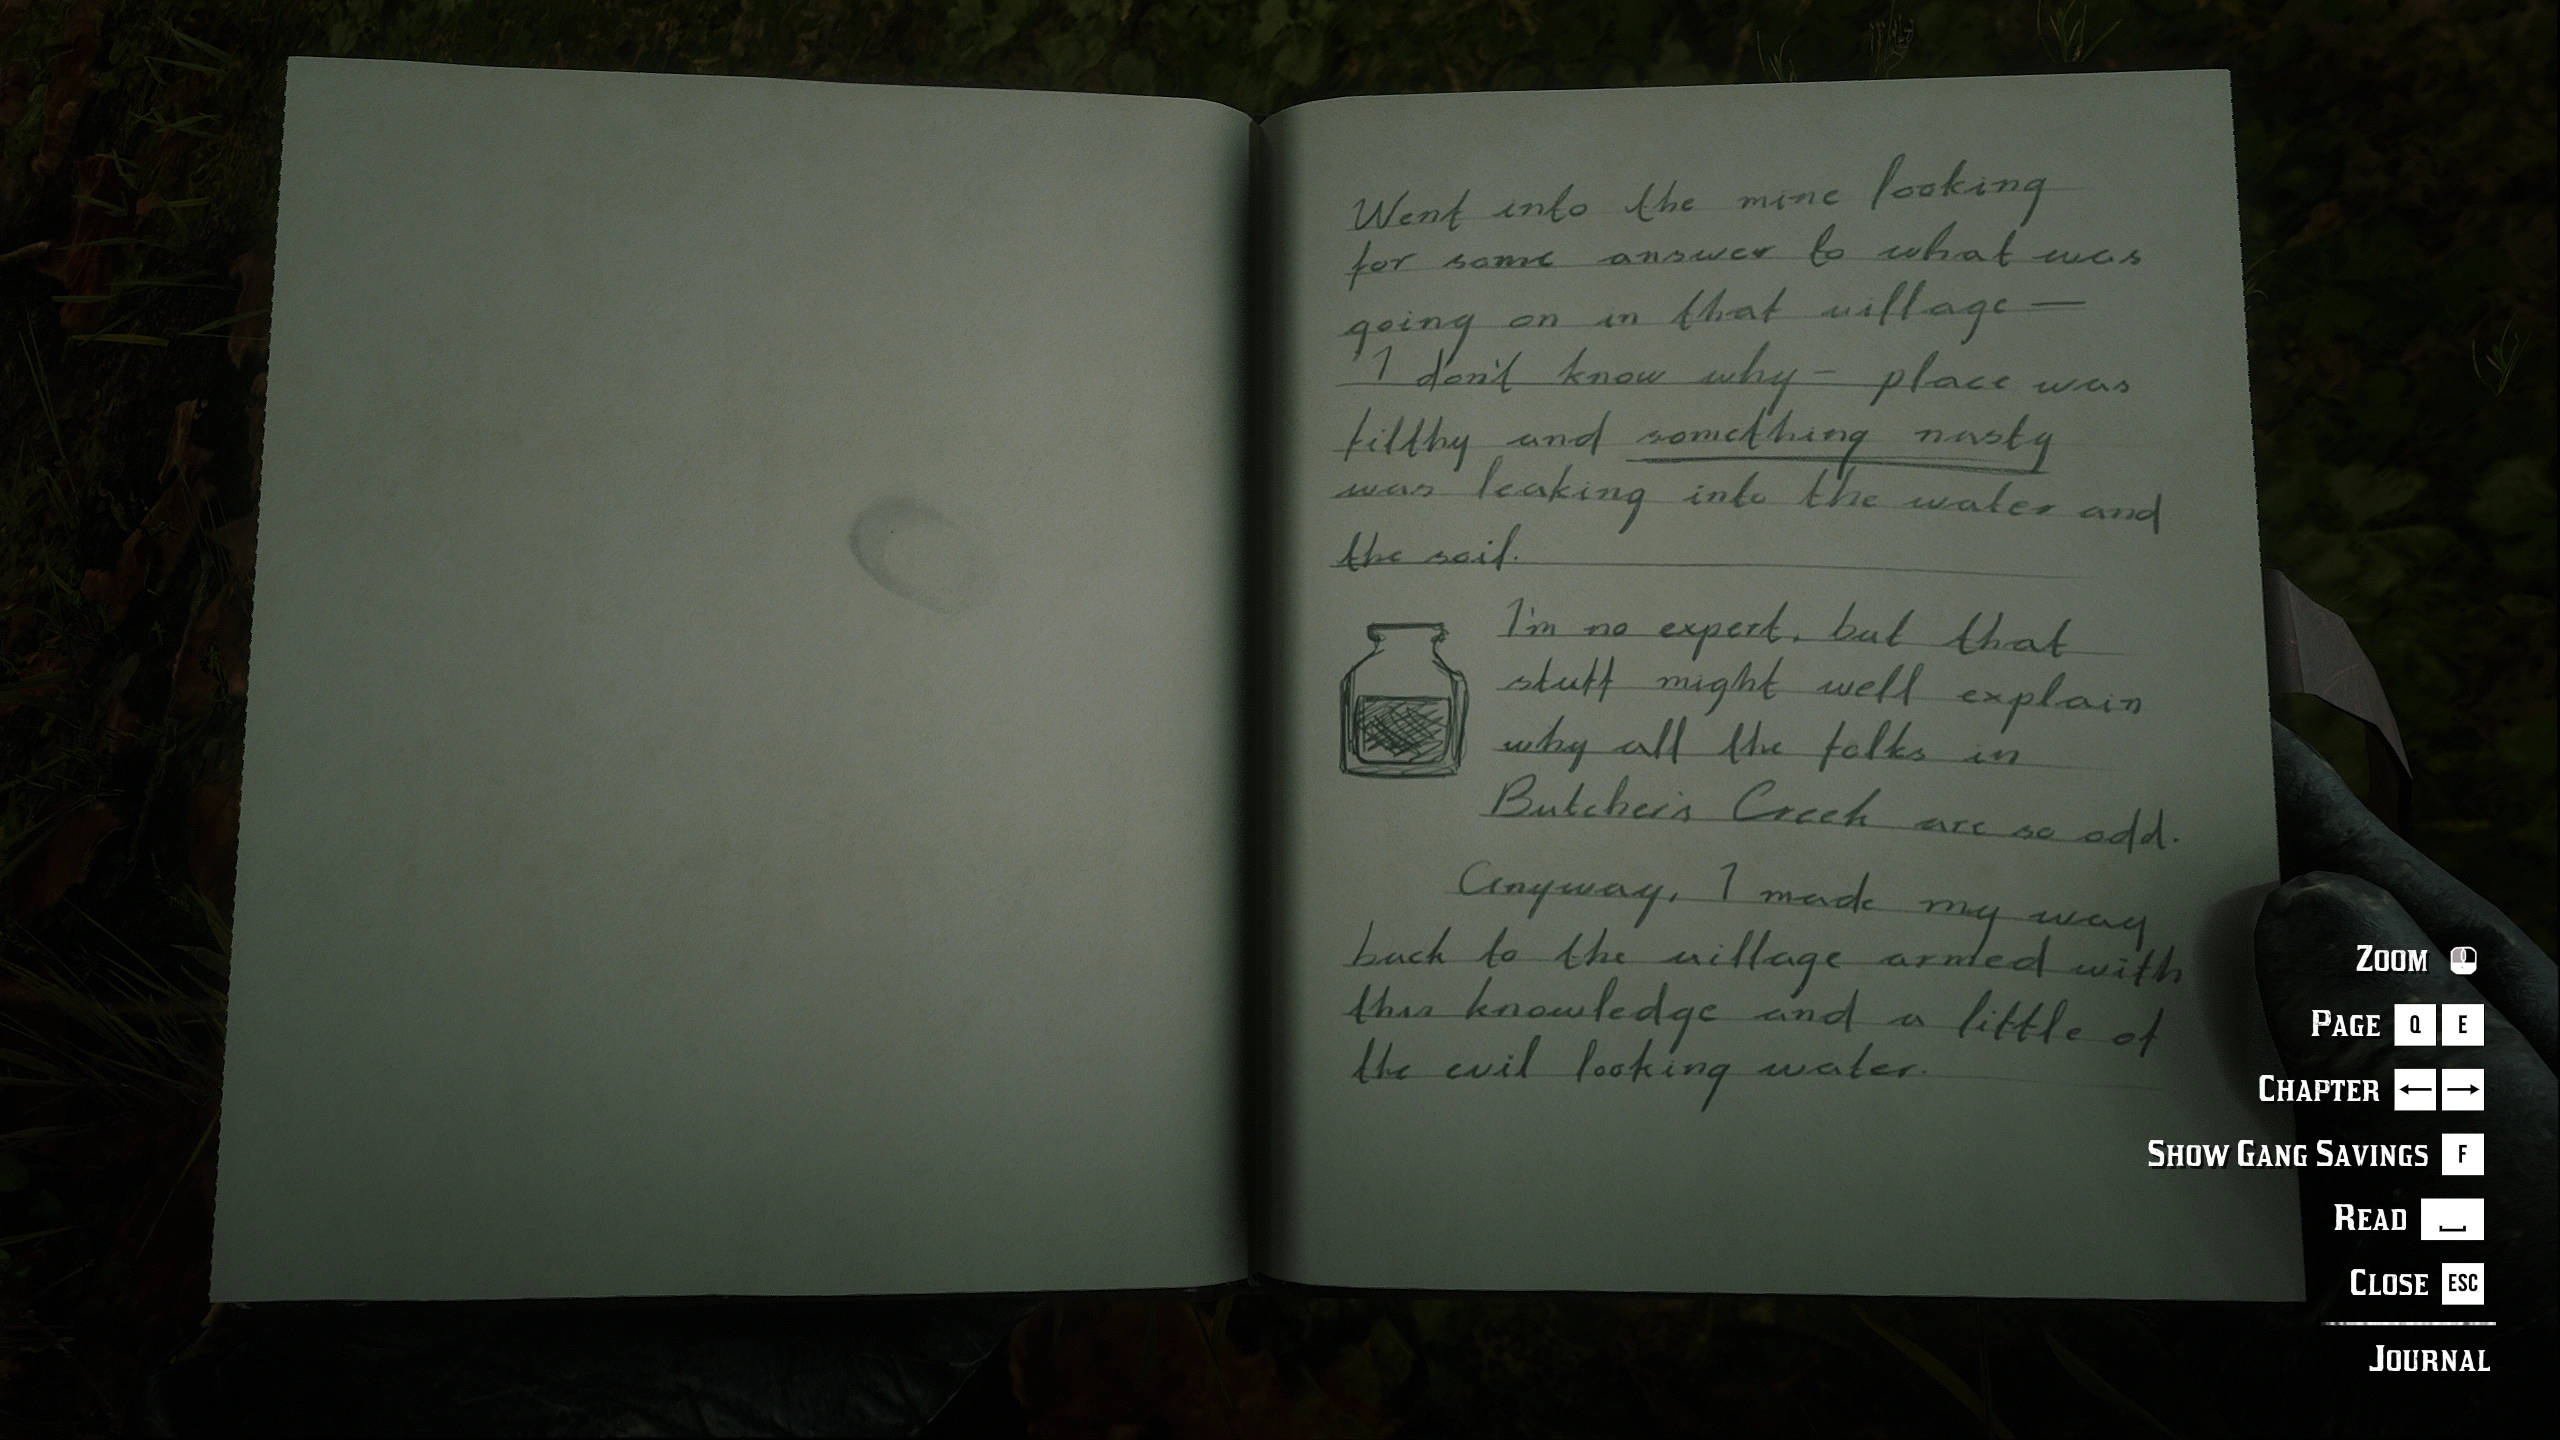 Went into the mine looking
for some answer to what was
going on in that village —
I don't know why – place was
filthy and something nasty
was leaking into the water and
the soil.
I'm no expert, but that
stuff might well explain
why all the folks in
Butcher's Creek are so odd.
Anyway, I made my way
back to the village armed with
this knowledge and a little of
the evil looking water.
ZOOM
PAGE Q E
CHAPTER ← →
SHOW GANG SAVINGS F
READ
CLOSE ESC
JOURNAL